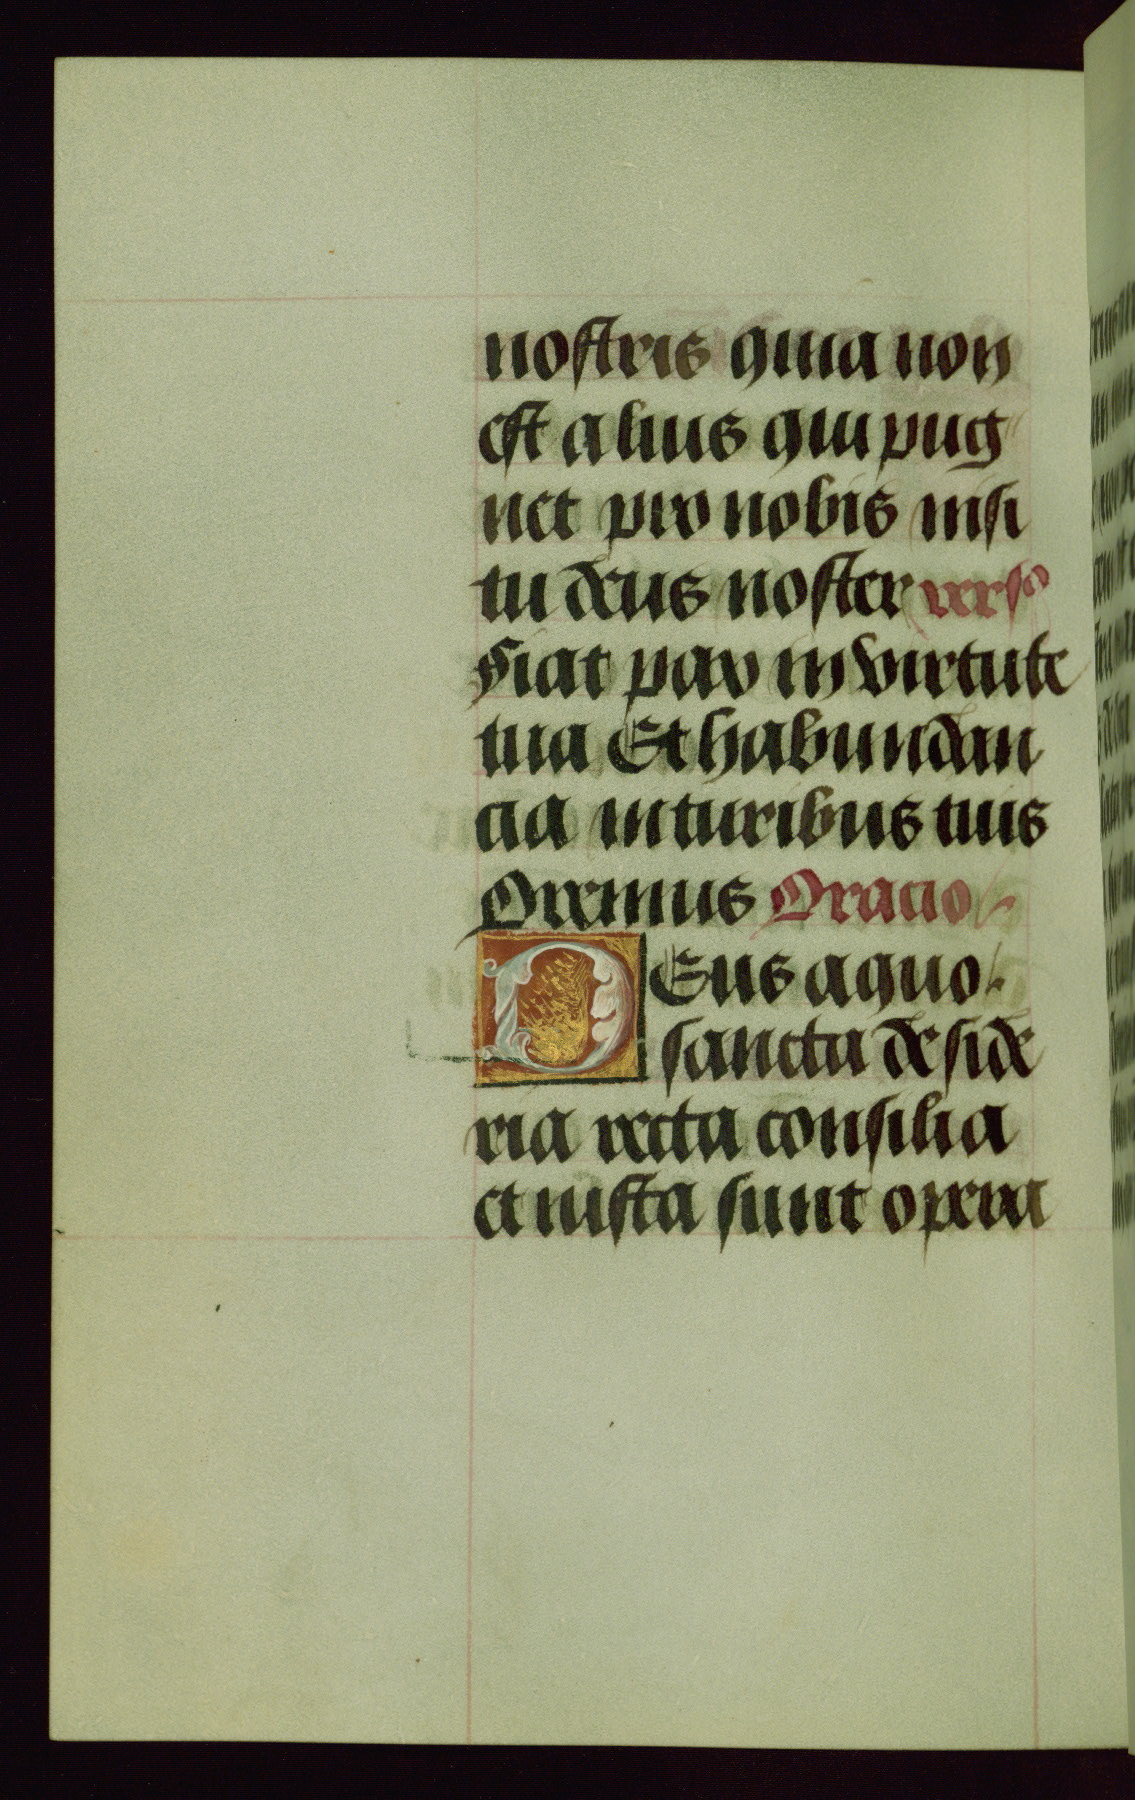 nostris quia non
est alius qui pug
net pro nobis nisi
tu deus noster verso
Fiat pax in virtute
tua Et habundan
cia in turibus tuis
Oremus Oracio
DEus a quo
sancta deside
ria recta consilia
et iusta sunt opera